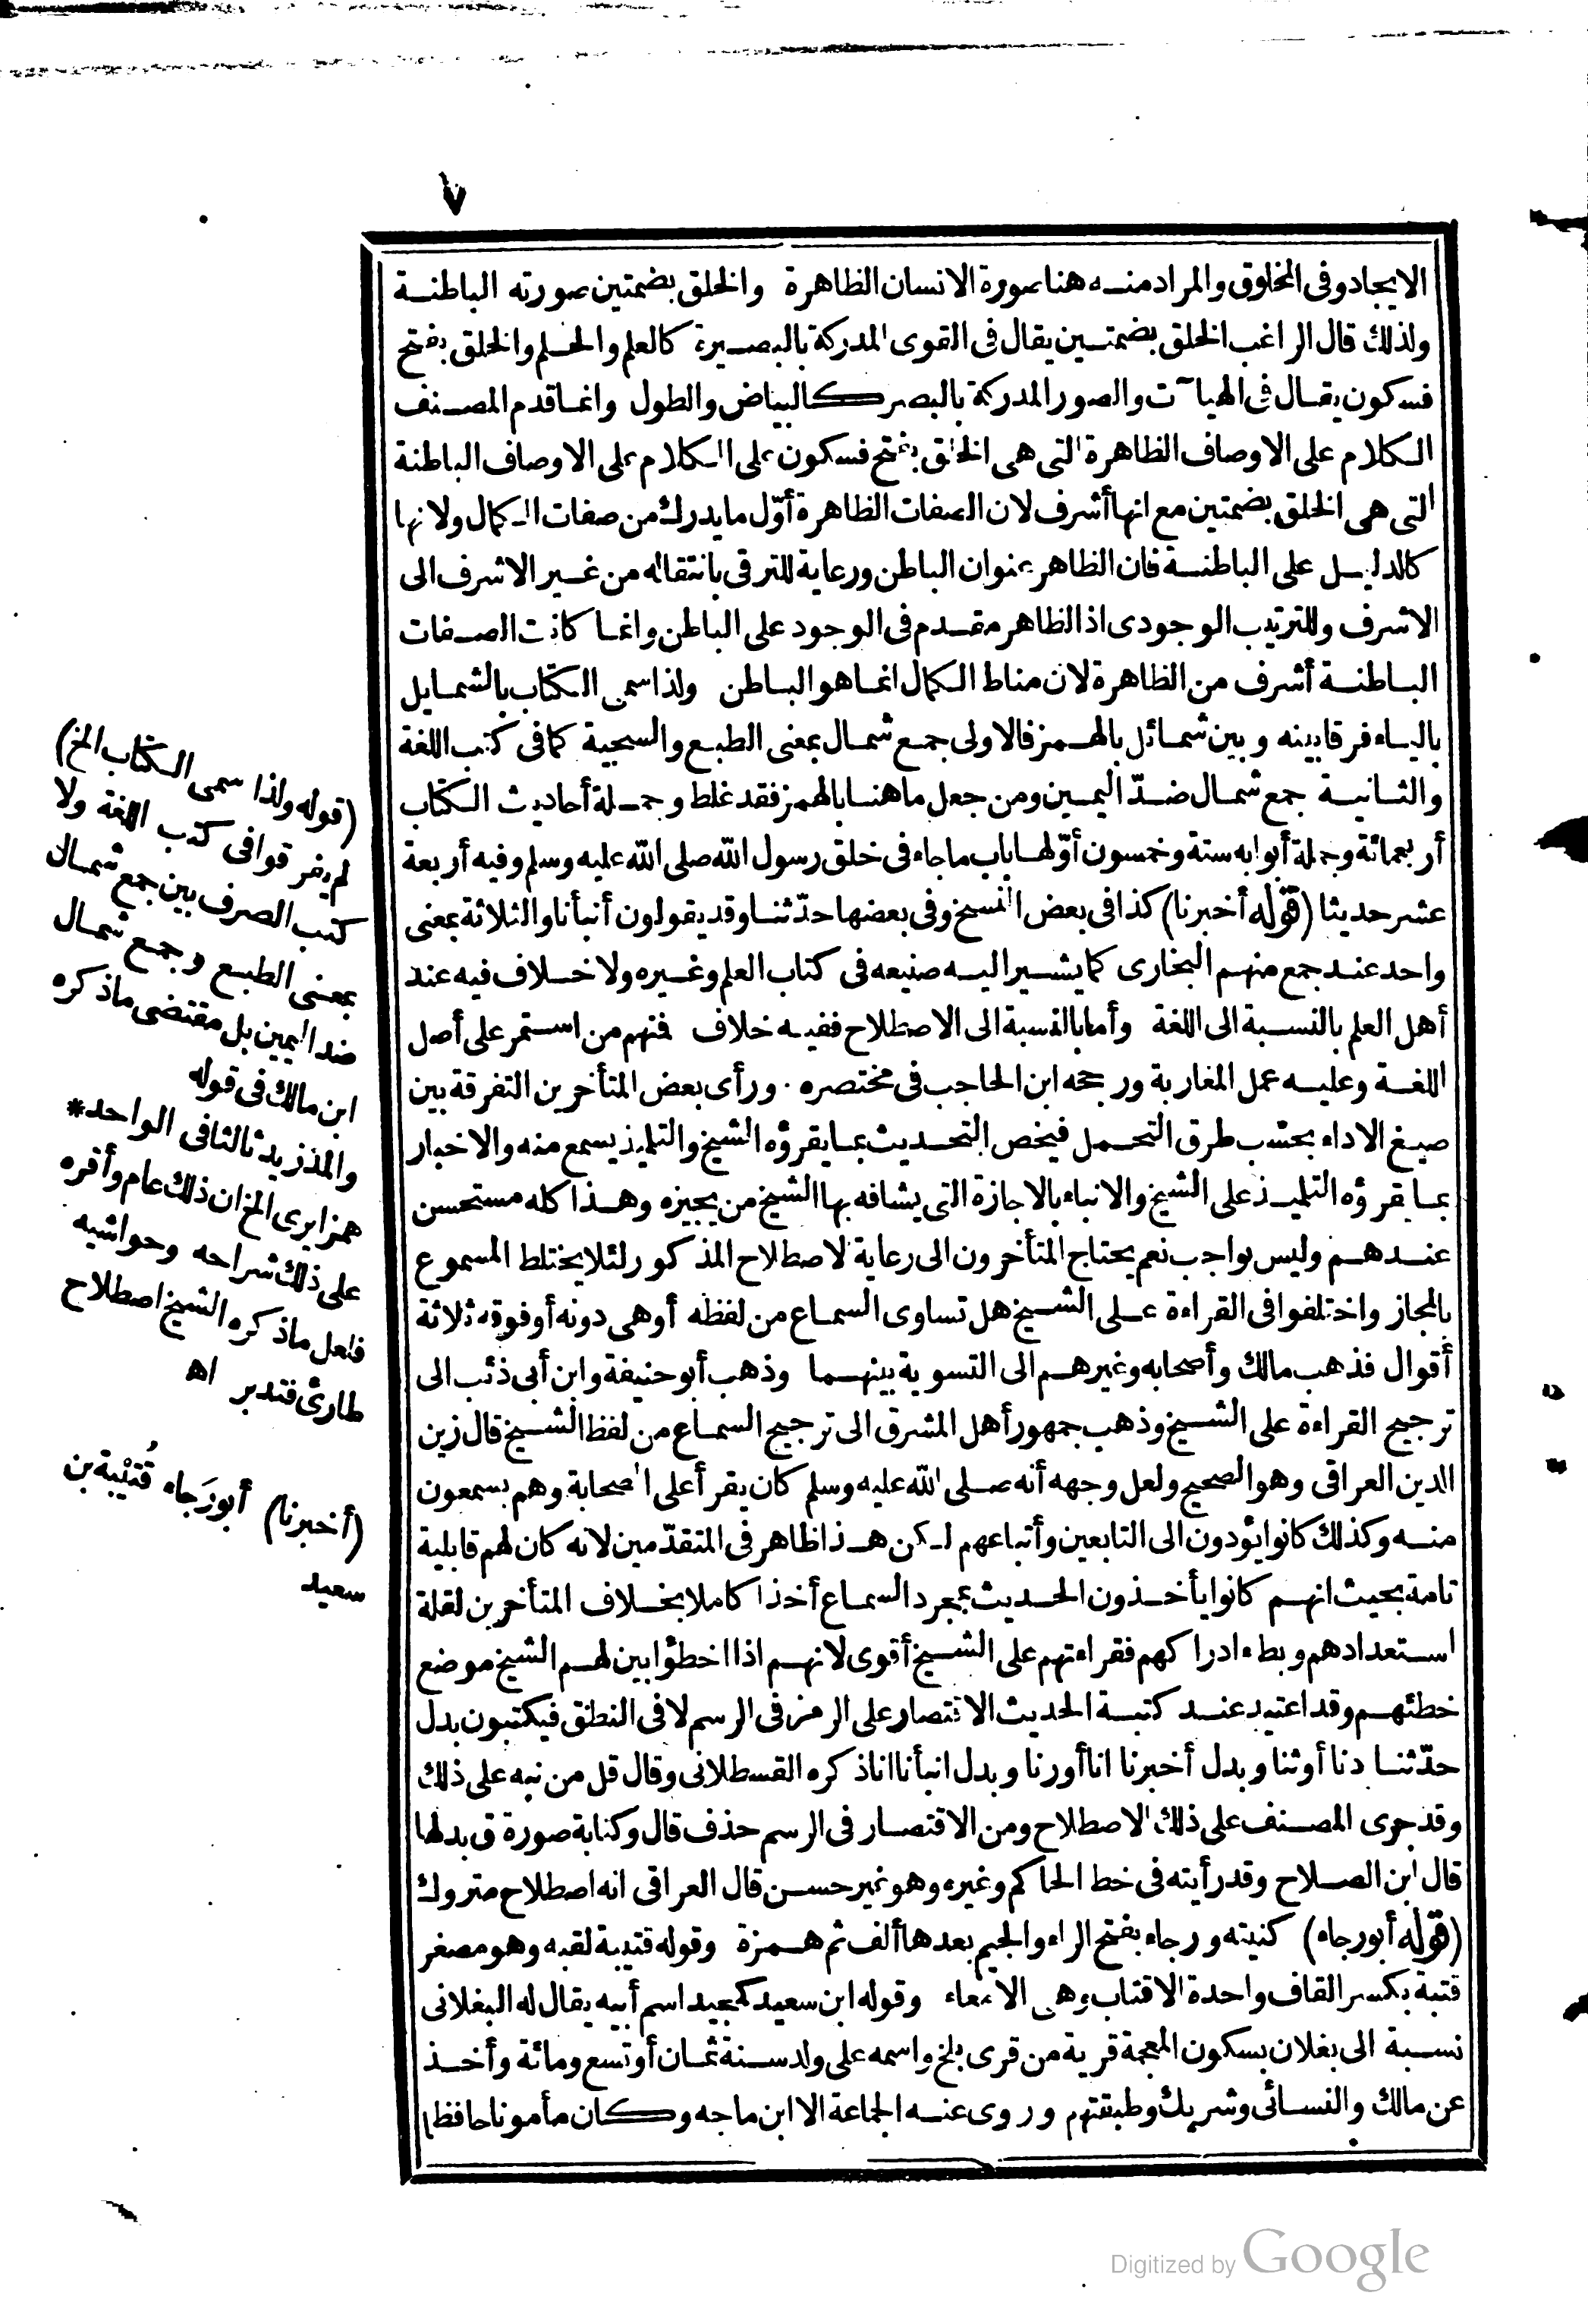 ٧
الايجاد وفى المخلوق والمراد منه هنا صورة الانسان الظاهرة والخلق بضمتين صورته الباطنة
ولذلك قال الراغب الخلق بضمتين يقال فى القوى المدركة بالبصيرة كالعلم والحلم والخلق بفتح
فسكون يقال فى الهيآت والصور المدركة بالبصر كالبياض والطول وانما قدم المصنف
الكلام على الاوصاف الظاهرة التى هى الخلق بفتح فسكون على الكلام على الاوصاف الباطنة
التى هى الخلق بضمتين مع انها أشرف لان الصفات الظاهرة أوّل ما يدرك من صفات الكمال ولانها
كالدليل على الباطنة فان الظاهر عنوان الباطن ورعاية للترقى بانتقاله من غير الاشرف الى
الاشرف وللترتيب الوجودى اذ الظاهر مقدم فى الوجود على الباطن وانما كانت الصفات
الباطنة أشرف من الظاهرة لان مناط الكمال انما هو الباطن ولذا سمى الكتاب بالشمايل
بالياء فرقا بينه وبين شمائل بالهمز فالاولى جمع شمال بمعنى الطبع والسجية كما فى كتب اللغة
والثانية جمع شمال ضدّ اليمين ومن جعل ما هنا بالهمز فقد غلط وجملة أحاديث الكتاب
أربعمائة وجملة أبوابه ستة وخمسون أوّلها باب ما جاء فى خلق رسول الله صلى الله عليه وسلم وفيه أربعة
عشر حديثا (قوله أخبرنا) كذا فى بعض النسخ وفى بعضها حدّثنا وقد يقولون أنبأنا والثلاثة بمعنى
واحد عند جمع منهم البخارى كما يشير اليه صنيعه فى كتاب العلم وغيره ولا خلاف فيه عند
أهل العلم بالنسبة الى اللغة وأما بالنسبة الى الاصطلاح ففيه خلاف فمنهم من استمر على أصل
اللغة وعليه عمل المغاربة ورجحه ابن الحاجب فى مختصره . ورأى بعض المتأخرين التفرقة بين
صيغ الاداء بحسب طرق التحمل فيخص التحديث بما يقرؤه الشيخ والتلميذ يسمع منه والاخبار
بما يقرؤه التلميذ على الشيخ والانباء بالاجازة التى يشافه بها الشيخ من يجيزه وهذا كله مستحسن
عندهم وليس بواجب نعم يحتاج المتأخرون الى رعاية الاصطلاح المذكور لئلا يختلط المسموع
بالمجاز واختلفوا فى القراءة على الشيخ هل تساوى السماع من لفظه أوهى دونه أو فوقه ثلاثة
أقوال فذهب مالك وأصحابه وغيرهم الى التسوية بينهما وذهب أبو حنيفة وابن أبى ذئب الى
ترجيح القراءة على الشيخ وذهب جمهور أهل المشرق الى ترجيح السماع من لفظ الشيخ قال زين
الدين العراقى وهو الصحيح ولعل وجهه أنه صلى الله عليه وسلم كان يقرأ على الصحابة وهم يسمعون
منه وكذلك كانوا يؤدون الى التابعين وأتباعهم لكن هذا ظاهر فى المتقدّمين لانه كان لهم قابلية
تامة بحيث انهم كانوا يأخذون الحديث بمجرد السماع أخذا كاملا بخلاف المتأخرين لقلة
استعدادهم وبطء ادراكهم فقراءتهم على الشيخ أقوى لانهم اذا اخطؤا بين لهم الشيخ موضع
خطئهم وقد اعتيد عند كتبة الحديث الاقتصار على الرمز فى الرسم لا فى النطق فيكتبون بدل
حدّثنا دنا أو ثنا وبدل أخبرنا انا أو رنا وبدل انبأنا انا ذكره القسطلانى وقال قل من نبه على ذلك
وقد جرى المصنف على ذلك الاصطلاح ومن الاقتصار فى الرسم حذف قال وكتابة صورة ق بدلها
قال ابن الصلاح وقد رأيته فى خط الحاكم وغيره وهو غير حسن قال العراقى انه اصطلاح متروك
(قوله أبو رجاء) كنيته ورجاء بفتح الراء والجيم بعدها ألف ثم همزة وقوله قتيبة لقبه وهو مصغر
قتبة بكسر القاف واحدة الاقتاب وهى الامعاء وقوله ابن سعيد كمجيد اسم أبيه يقال له البغلانى
نسبة الى بغلان بسكون المعجمة قرية من قرى بلخ واسمه على ولد سنة ثمان أو تسع ومائة وأخذ
عن مالك والنسائى وشريك وطبقتهم وروى عنه الجماعة الا ابن ماجه وكان مأمونا حافظا
(قوله ولذا سمى الكتاب الخ)
لم يفرقوا فى كتب اللغة ولا
كتب الصرف بين جمع شمال
بمعنى الطبع وجمع شمال
ضد اليمين بل مقتضى ما ذكره
ابن مالك فى قوله
والمد زيد ثالثا فى الواحد *
همزا يرى الخ ان ذلك عام وأقره
على ذلك شراحه وحواشيه
فلعل ما ذكره الشيخ اصطلاح
طارئ فتدبر اه
(أخبرنا) أبو رَجاء قُتَيْبة بن
سعيد
Digitized by Google